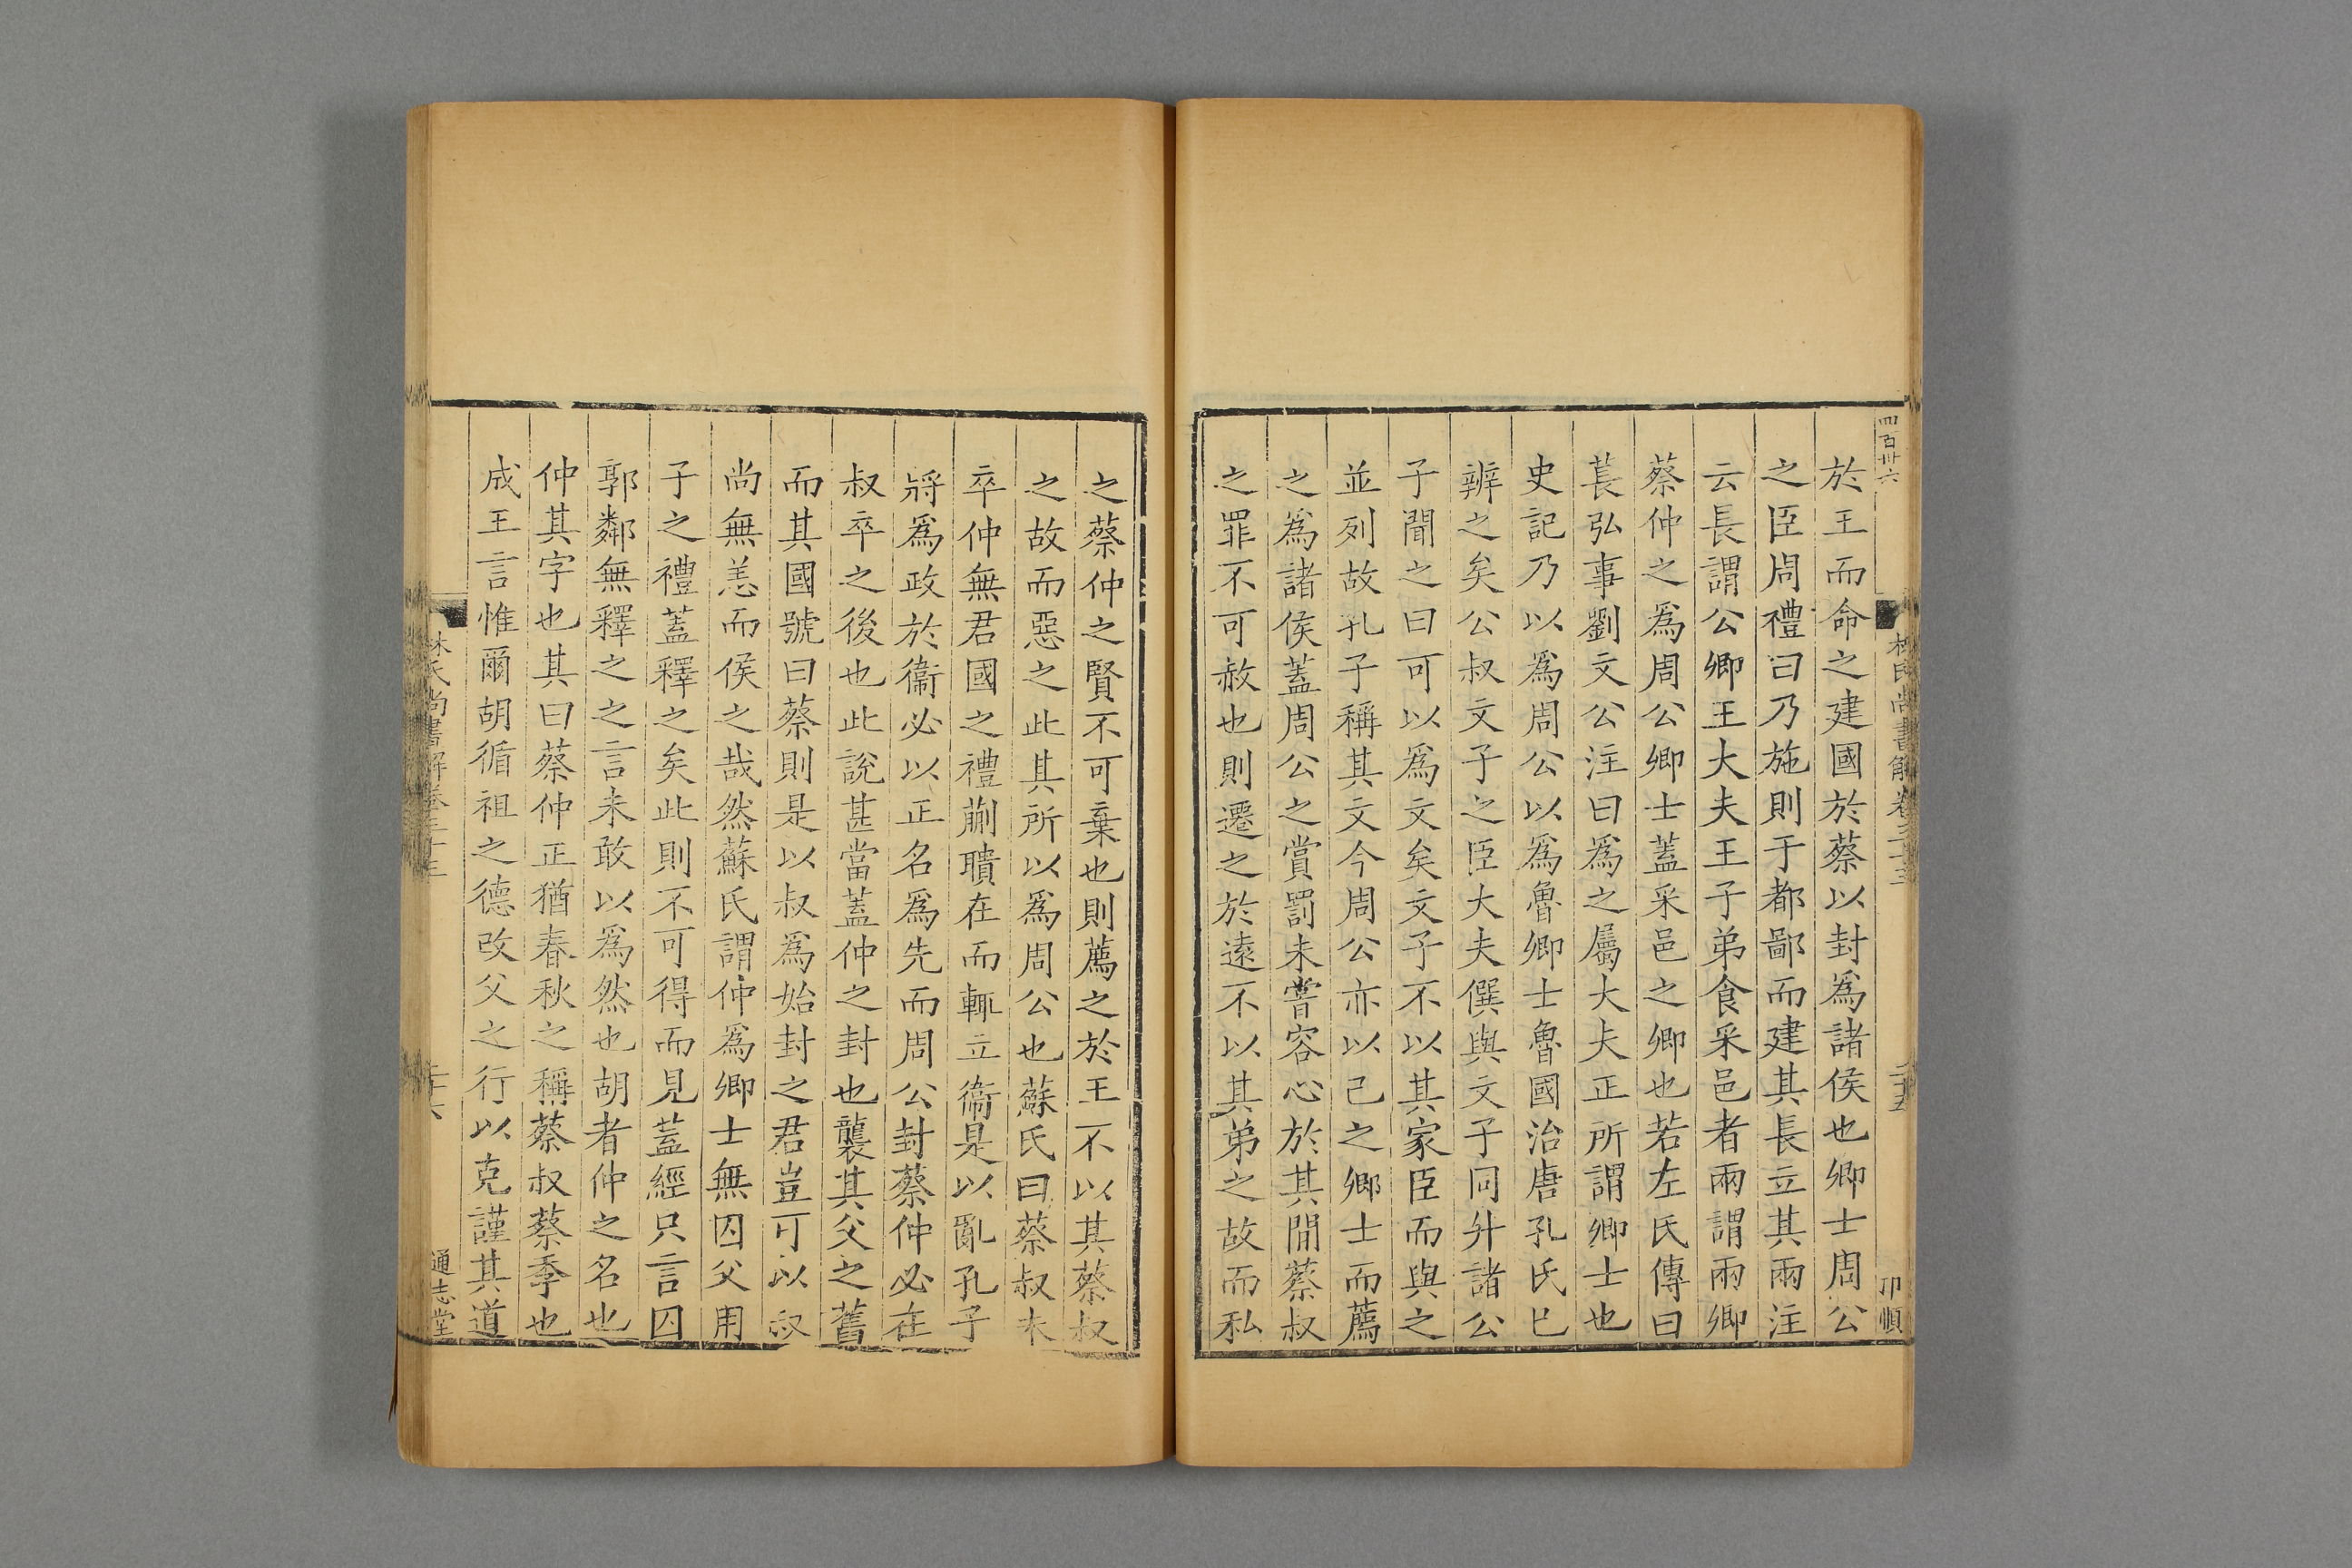 四百卅六
林氏尚書解卷三十三
三十五
卬順
於王而命之建國於蔡以封爲諸侯也卿士周公
之臣周禮曰乃施則于都鄙而建其長立其兩注
云長謂公卿王大夫王子弟食采邑者兩謂兩卿
蔡仲之爲周公卿士蓋采邑之卿也若左氏傳曰
萇弘事劉文公注曰爲之屬大夫正所謂卿士也
史記乃以爲周公以爲魯卿士魯國治唐孔氏已
辨之矣公叔文子之臣大夫僎與文子同升諸公
子聞之曰可以爲文矣文子不以其家臣而與之
並列故孔子稱其文今周公亦以己之卿士而薦
之爲諸侯蓋周公之賞罰未嘗容心於其閒蔡叔
之罪不可赦也則遷之於遠不以其弟之故而私
之蔡仲之賢不可棄也則薦之於王不以其蔡叔
之故而惡之此其所以爲周公也蘇氏曰蔡叔未
卒仲無君國之禮蒯聵在而輒立衞是以亂孔子
將爲政於衞必以正名爲先而周公封蔡仲必在
叔卒之後也此說甚當蓋仲之封也襲其父之舊
而其國號曰蔡則是以叔爲始封之君豈可以叔
尚無恙而侯之哉然蘇氏謂仲爲卿士無囚父用
子之禮蓋釋之矣此則不可得而見蓋經只言囚
郭鄰無釋之之言未敢以爲然也胡者仲之名也
仲其字也其曰蔡仲正猶春秋之稱蔡叔蔡季也
成王言惟爾胡循祖之德改父之行以克謹其道
林氏尚書解卷三十三
三十六
通志堂